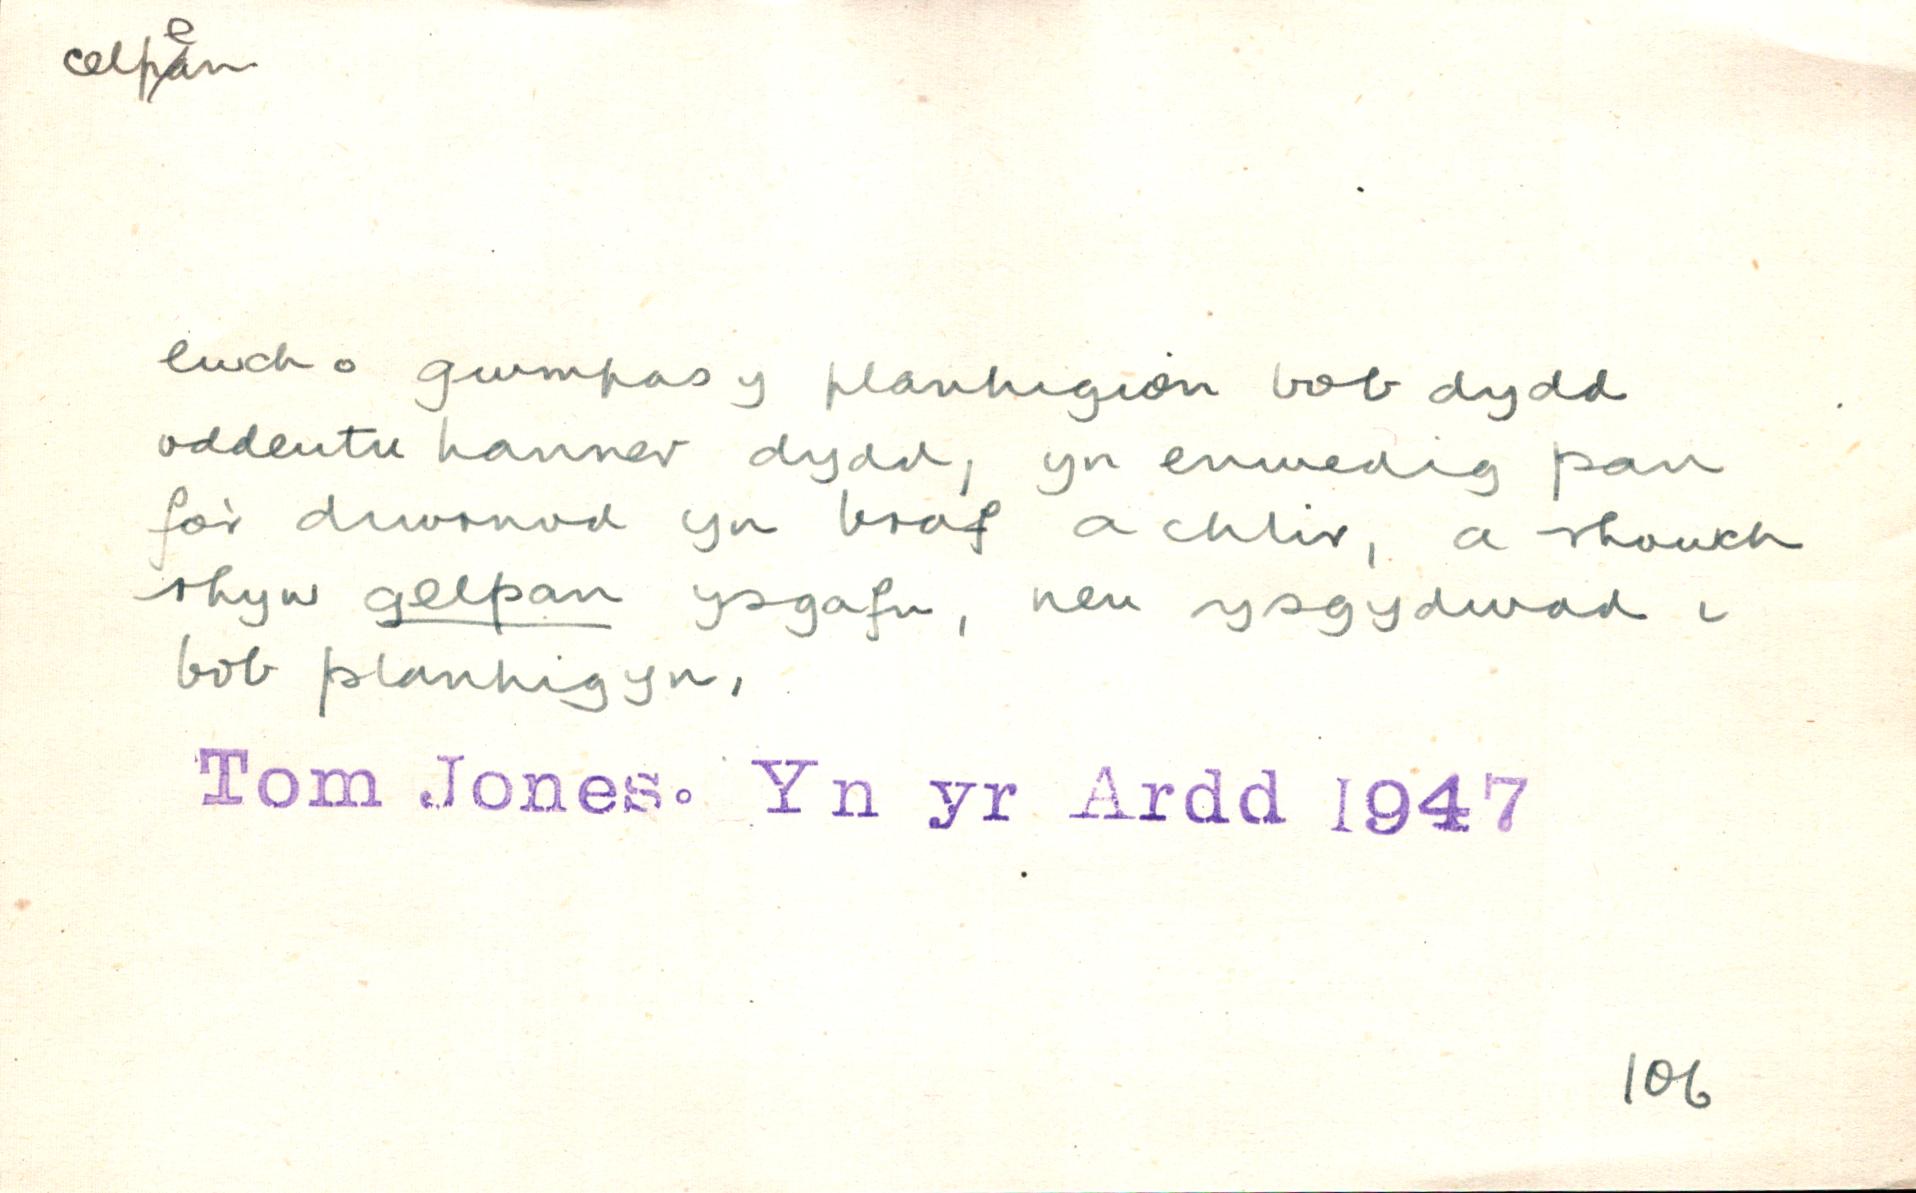 celpen
ewch o gwmpas y planhigion bob dydd
oddeutu hanner dydd, yn enwedig pan
fo'r diwrnod yn braf a chlir, a rhowch
rhyw gelpan ysgafn, neu ysgydwad i
bob planhigyn.
Tom Jones. Yn yr Ardd 1947
106